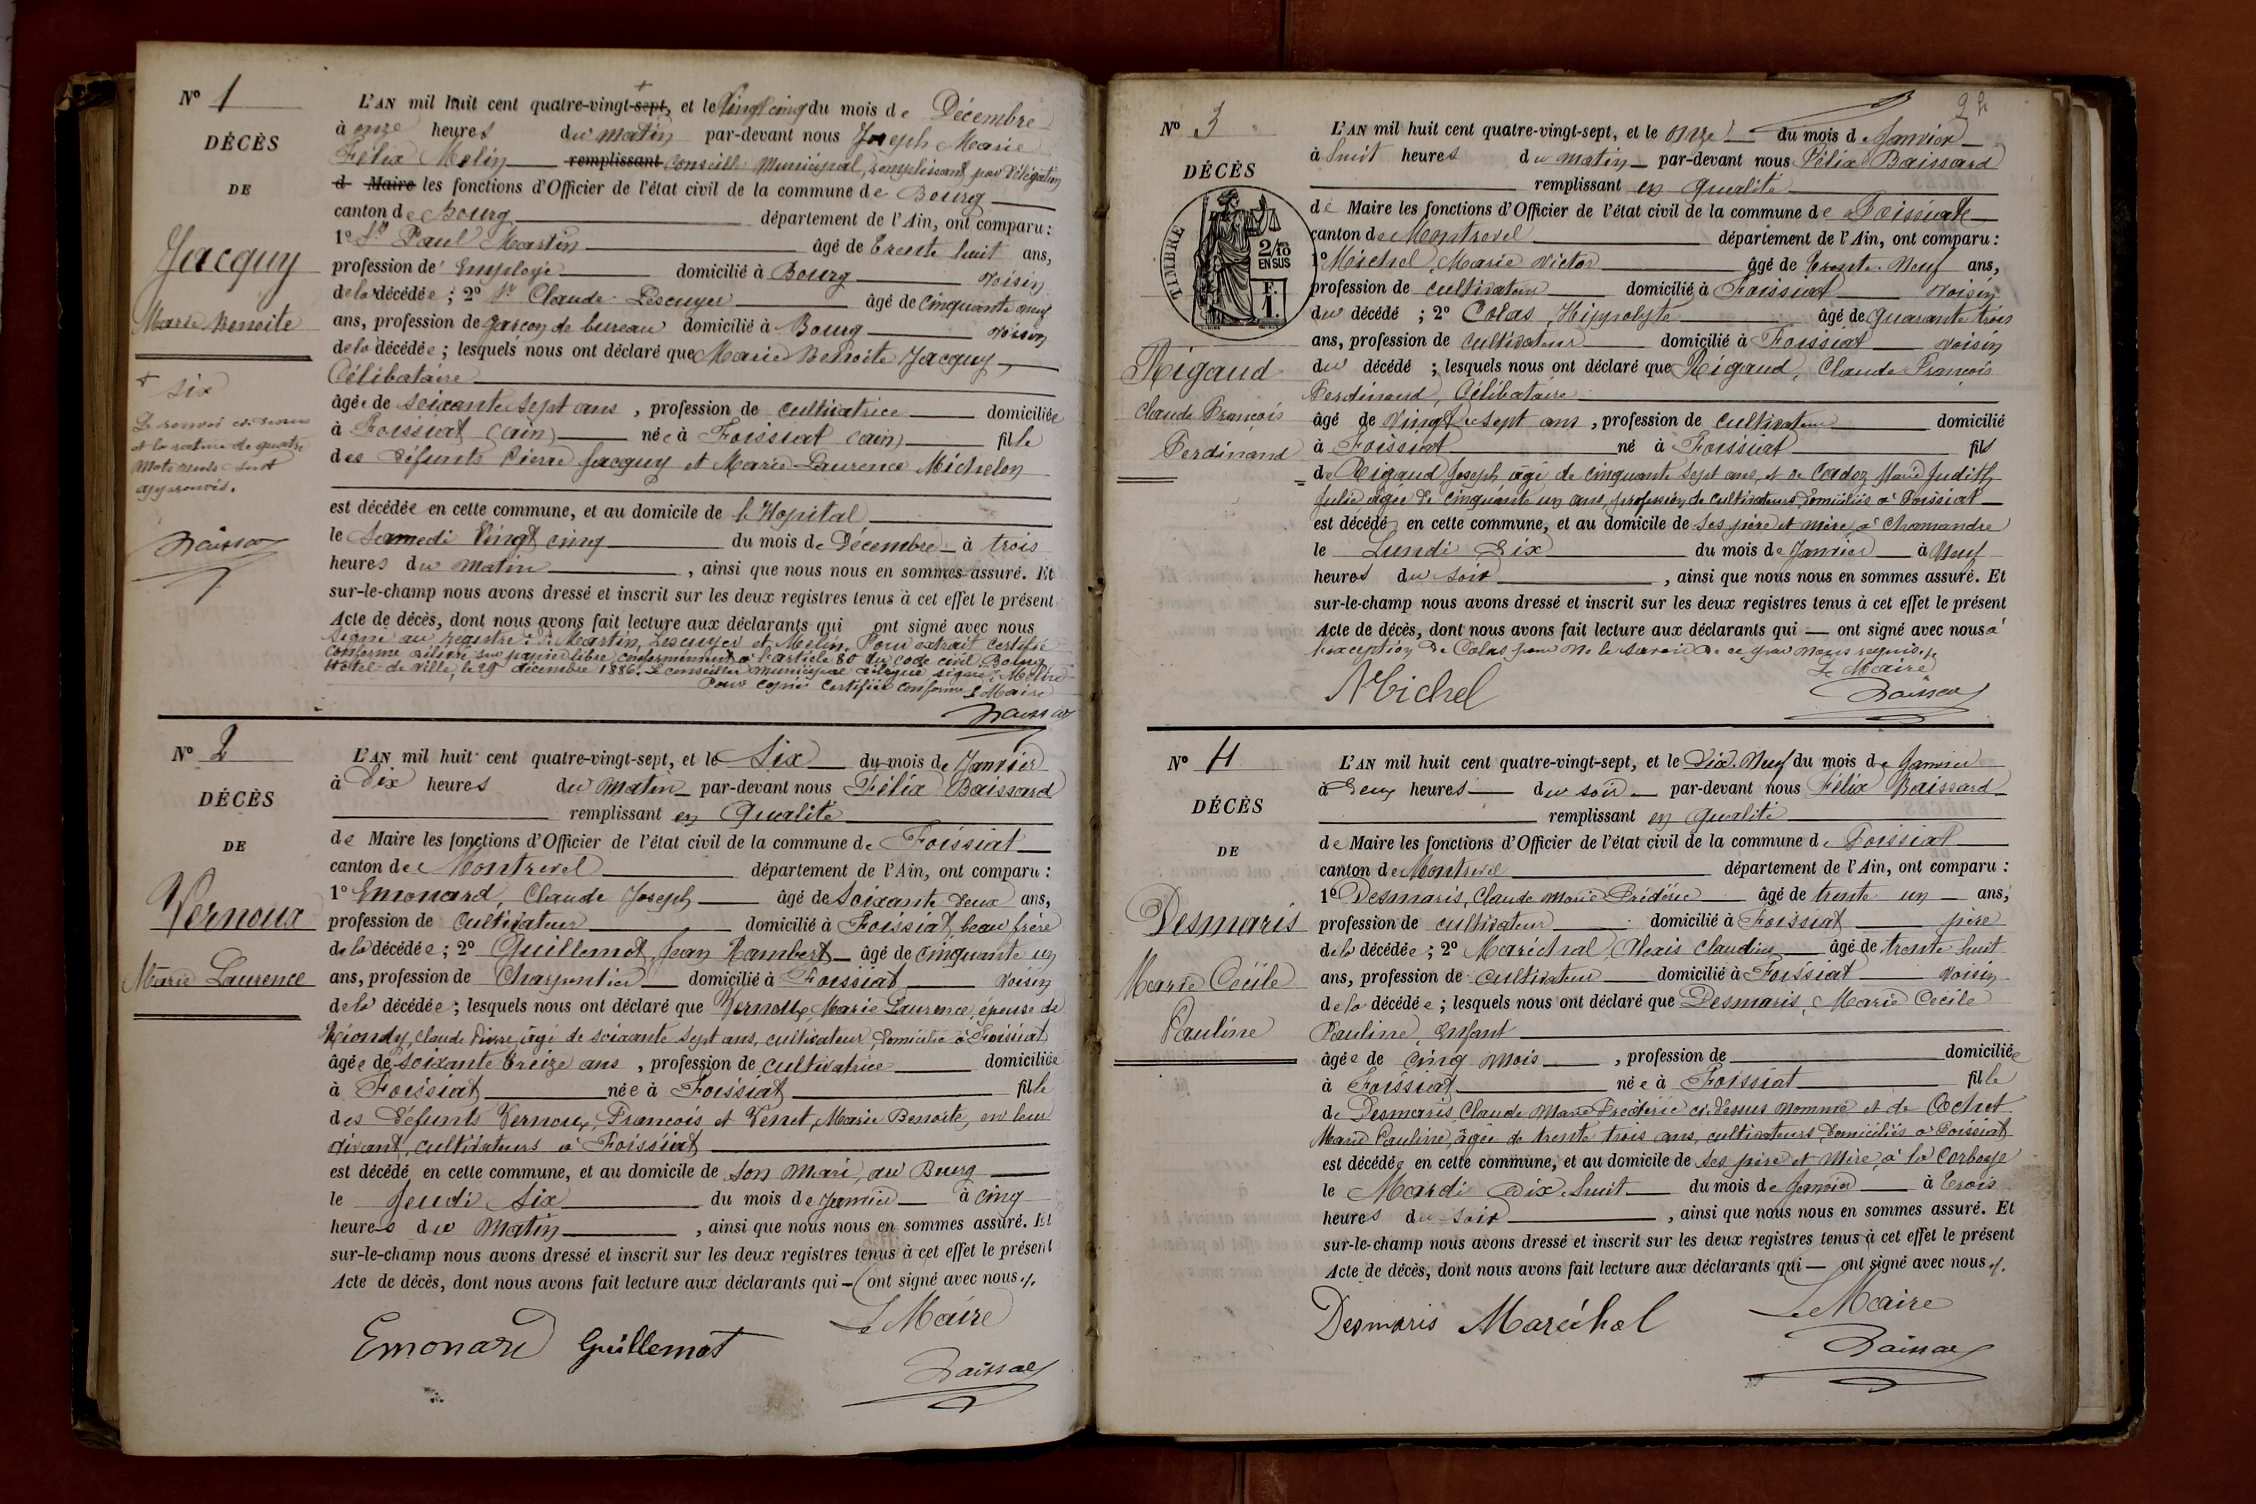 Nº 1
DÉCÈS
DE
Jacquy
Marie Benoite
+ six
Le renvoi ci-dessus
et la rature de quatre
mots nuls sont
approuvés.
L'AN mil huit cent quatre-vingt-sept, et le vingt cinq du mois de Décembre
à onze heures du matin par-devant nous Joseph Marie
Félix Melin remplissant Conseiller Municipal, remplissant par délégation
d Maire les fonctions d'Officier de l'état civil de la commune de Bourg
canton de Bourg département de l'Ain, ont comparu :
1º Sr Paul Martin âgé de trente huit ans,
profession de Employé domicilié à Bourg voisin
de la décédée ; 2º Sr Claude Lescuyer âgé de cinquante neuf
ans, profession de garçon de bureau domicilié à Bourg voisin
de la décédée ; lesquels nous ont déclaré que Marie Benoite Jacquy,
Célibataire
âgée de soixante sept ans, profession de cultivatrice domiciliée
à Foissiat (Ain) née à Foissiat (Ain) fille
des défunts Pierre Jacquy et Marie Laurence Michelon
est décédée en cette commune, et au domicile de l'Hopital
le Samedi vingt cinq du mois de Décembre à trois
heures du matin, ainsi que nous nous en sommes assuré. Et
sur-le-champ nous avons dressé et inscrit sur les deux registres tenus à cet effet le présent
Acte de décès, dont nous avons fait lecture aux déclarants qui ont signé avec nous
Signé au registre : Martin, Lescuyer et Melin. Pour extrait certifié
conforme délivré sur papier libre conformément à l'article 80 du code civil. Bourg,
Hôtel de Ville, le 29 décembre 1886. Le conseiller municipal délégué signé : Melin
Pour copie certifiée conforme Le Maire
Nº 2
DÉCÈS
DE
Vernoux
Marie Laurence
L'AN mil huit cent quatre-vingt-sept, et le Six du mois de Janvier
à dix heures du matin par-devant nous Félix Baissard
remplissant en qualité
de Maire les fonctions d'Officier de l'état civil de la commune de Foissiat
canton de Montrevel département de l'Ain, ont comparu :
1º Emonard, Claude Joseph âgé de soixante deux ans,
profession de cultivateur domicilié à Foissiat, beau frère
de la décédée ; 2º Guillemot, Jean Rambert âgé de cinquante un
ans, profession de Charpentier domicilié à Foissiat voisin
de la décédée ; lesquels nous ont déclaré que Vernoux, Marie Laurence, épouse de
Riondy, Claude Pierre, âgé de soixante sept ans, cultivateur, domicilié à Foissiat
âgée de soixante treize ans, profession de cultivatrice domiciliée
à Foissiat née à Foissiat fille
des défunts Vernoux, François et Venet, Marie Benoite, en leur
vivant, cultivateurs à Foissiat
est décédé en cette commune, et au domicile de son mari, au Bourg
le Jeudi six du mois de Janvier à cinq
heures du matin, ainsi que nous nous en sommes assuré. Et
sur-le-champ nous avons dressé et inscrit sur les deux registres tenus à cet effet le présent
Acte de décès, dont nous avons fait lecture aux déclarants qui ont signé avec nous.
Le Maire
Emonard Guillemot
Nº 3
DÉCÈS
TIMBRE
2/10
EN SUS
F.
1.
Rigaud
Claude François
Ferdinand
L'AN mil huit cent quatre-vingt-sept, et le onze du mois de Janvier
à huit heures du matin par-devant nous Félix Baissard
remplissant en qualité
de Maire les fonctions d'Officier de l'état civil de la commune de Foissiat
canton de Montrevel département de l'Ain, ont comparu :
1º Michel, Marie Victor âgé de trente-neuf ans,
profession de cultivateur domicilié à Foissiat voisin
du décédé ; 2º Colas, Hippolyte âgé de quarante trois
ans, profession de cultivateur domicilié à Foissiat voisin
du décédé ; lesquels nous ont déclaré que Rigaud, Claude François
Ferdinand, Célibataire
âgé de vingt sept ans, profession de cultivateur domicilié
à Foissiat né à Foissiat fils
de Rigaud Joseph âgé de cinquante sept ans, et de Cadoz Marie Judith
Julie âgée de cinquante un ans, profession de cultivateurs, domiciliés à Foissiat
est décédé en cette commune, et au domicile de ses père et mère, à Chamandre
le Lundi dix du mois de Janvier à neuf
heures du soir, ainsi que nous nous en sommes assuré. Et
sur-le-champ nous avons dressé et inscrit sur les deux registres tenus à cet effet le présent
Acte de décès, dont nous avons fait lecture aux déclarants qui ont signé avec nous à
l'exception de Colas pour ne le savoir de ce par nous requis.
Le Maire
Michel
Nº 4
DÉCÈS
DE
Desmaris
Marie Cécile
Pauline
L'AN mil huit cent quatre-vingt-sept, et le dix-neuf du mois de Janvier
à deux heures du soir par-devant nous Félix Baissard
remplissant en qualité
de Maire les fonctions d'Officier de l'état civil de la commune de Foissiat
canton de Montrevel département de l'Ain, ont comparu :
1º Desmaris, Claude Marie Frédéric âgé de trente un ans,
profession de cultivateur domicilié à Foissiat père
de la décédée ; 2º Maréchal, Alexis Claudius âgé de trente huit
ans, profession de cultivateur domicilié à Foissiat voisin
de la décédée ; lesquels nous ont déclaré que Desmaris, Marie Cécile
Pauline, Enfant
âgée de cinq mois, profession de domiciliée
à Foissiat née à Foissiat fille
de Desmaris Claude Marie Frédéric ci-dessus nommé et de Cochet
Marie Pauline, âgée de trente trois ans, cultivateurs, domiciliés à Foissiat
est décédée en cette commune, et au domicile de ses père et mère, à la Corbaye
le Mardi dix-huit du mois de Janvier à trois
heures du soir, ainsi que nous nous en sommes assuré. Et
sur-le-champ nous avons dressé et inscrit sur les deux registres tenus à cet effet le présent
Acte de décès, dont nous avons fait lecture aux déclarants qui ont signé avec nous.
Le Maire
Desmaris Maréchal